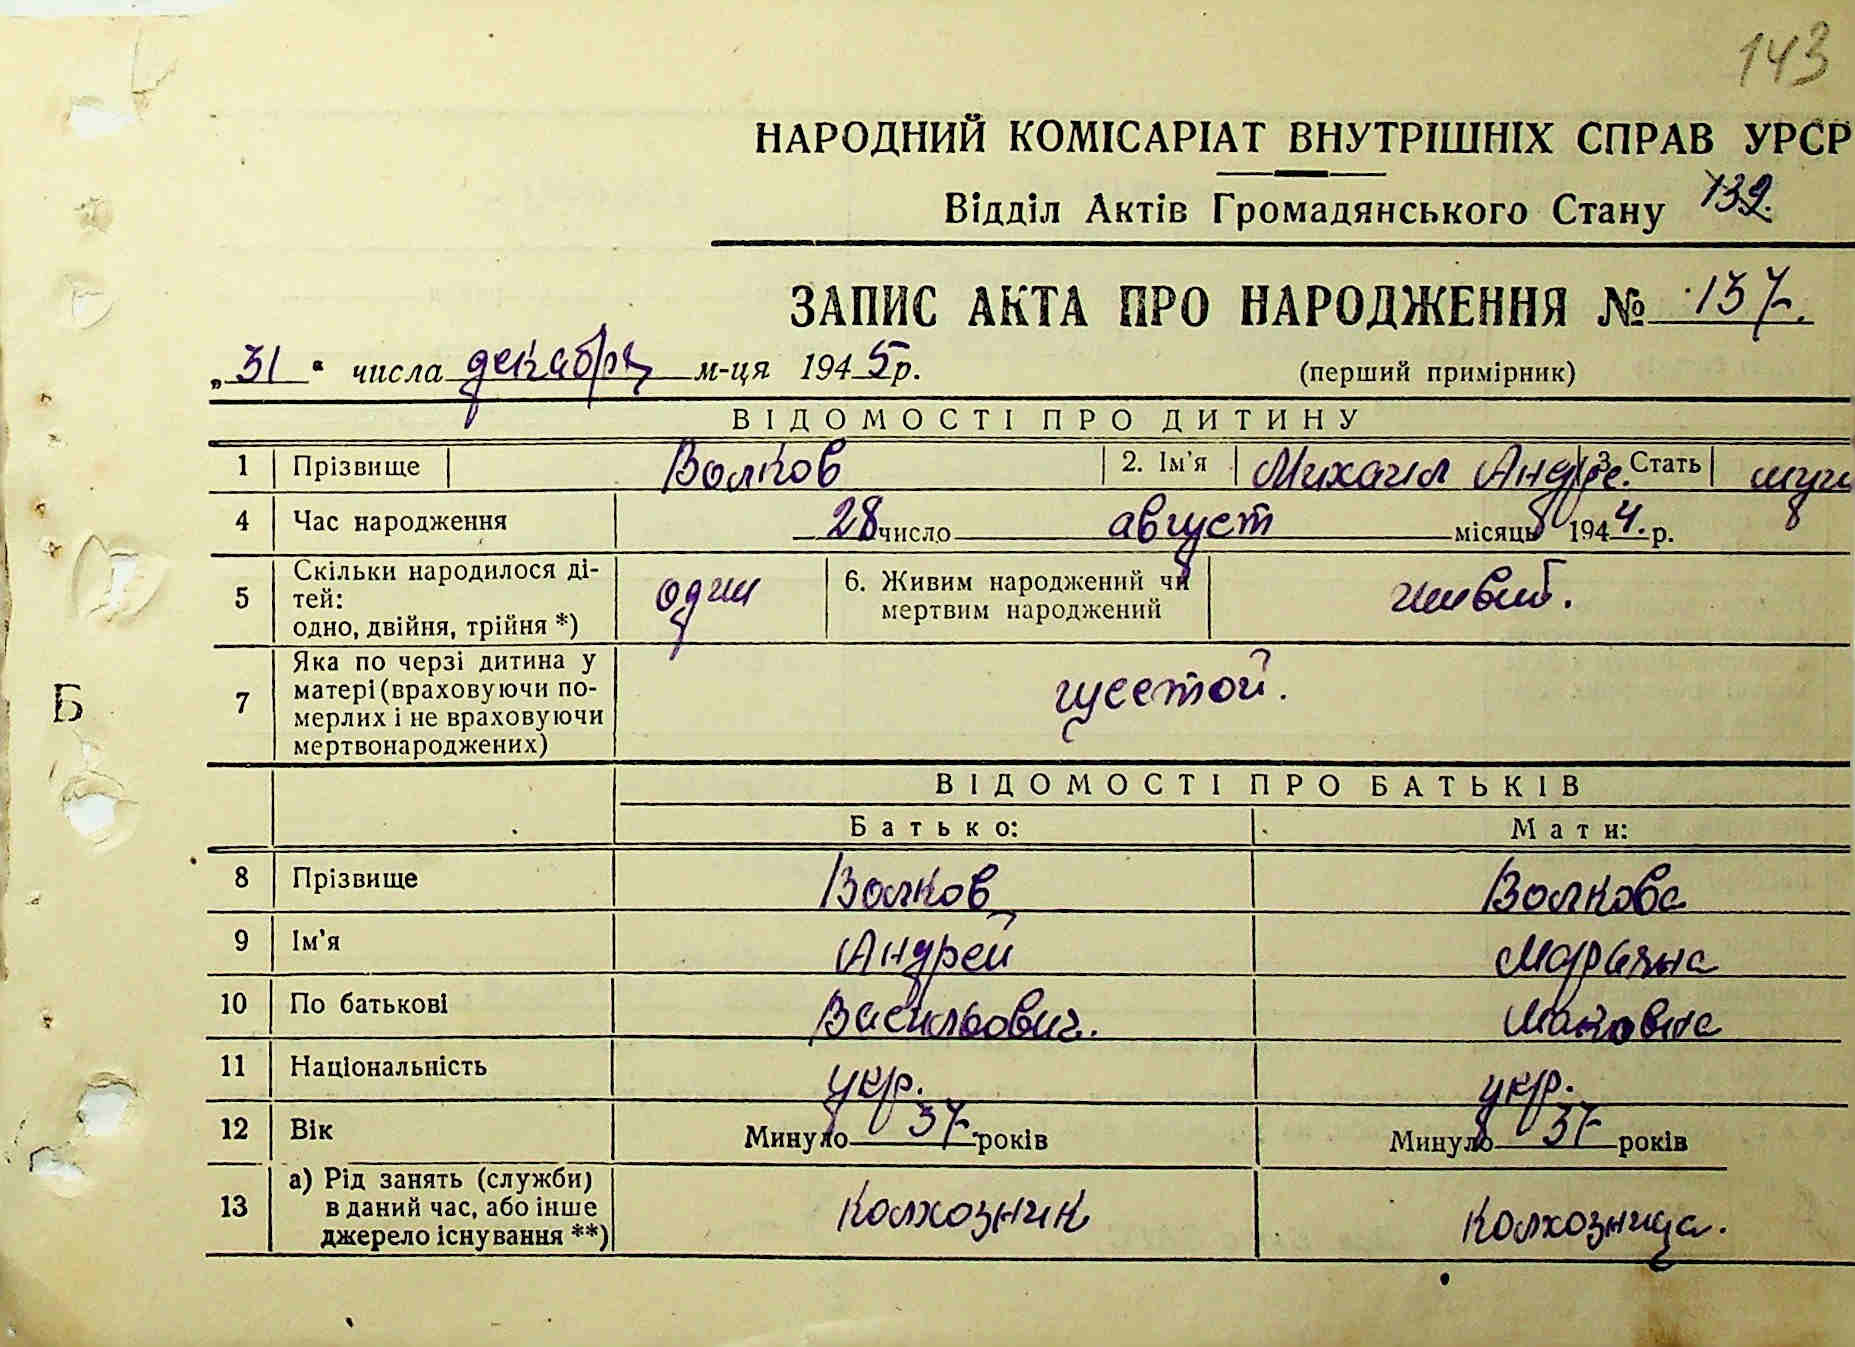 143
НАРОДНИЙ КОМІСАРІАТ ВНУТРІШНІХ СПРАВ УРСР
Відділ Актів Громадянського Стану 139.
ЗАПИС АКТА ПРО НАРОДЖЕННЯ № 137.
„31“ числа декабря м-ця 1945 р. (перший примірник)
ВІДОМОСТІ ПРО ДИТИНУ
1 Прізвище Волков 2. Ім'я Михаил Андре. 3. Стать муж
4 Час народження 28 число август місяць 1944. р.
5 Скільки народилося ді-
тей:
одно, двійня, трійня *) один 6. Живим народжений чи
мертвим народжений живий.
7 Яка по черзі дитина у
матері (враховуючи по-
мерлих і не враховуючи
мертвонароджених) шестой.
ВІДОМОСТІ ПРО БАТЬКІВ
Батько: Мати:
8 Прізвище Волков Волкова
9 Ім'я Андрей Марьяна
10 По батькові Васильович.
11 Національність укр. укр.
12 Вік Минуло 37 років Минуло 37 років
13 а) Рід занять (служби)
в даний час, або інше
джерело існування **) Колхозник Колхозница.
Б